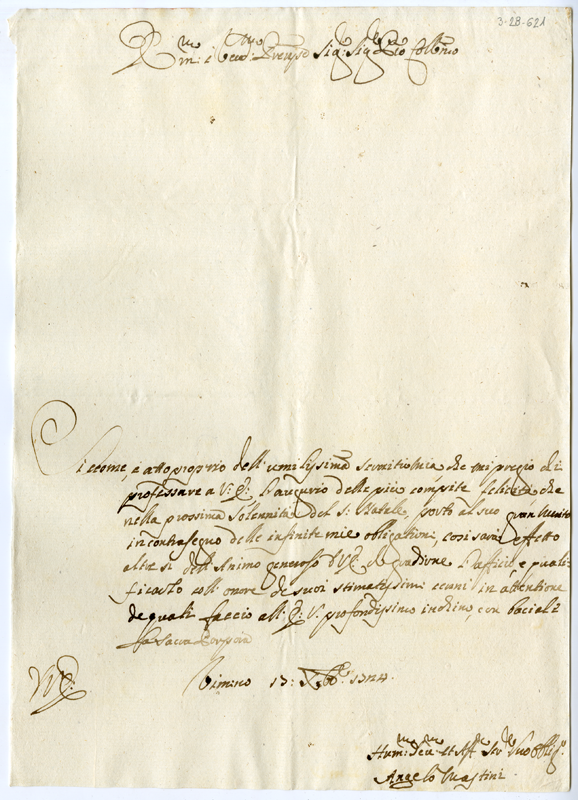 3-28-621
Sig: Sig:
Siccome, è atto proprio dell'umilissima servitù mia che mi pregio di
professare a V: E: l'augurio delle più compite felicità, che
nella prossima Solennità del S: Natale, porto al suo gran Merito
in contrasegno delle infinite mie obligationi, così sarà effetto
altresì dell'Animo generoso d'V E: il gradirne l'ufficio, e quali-
ficarlo coll'onore de suoi stimatissimi cenni in attentione
de quali faccio all' E: V: profondissimo inchino, con baciarle
la Sacra Porpora
Rimino 13: Xbre:
Angelo Mastini